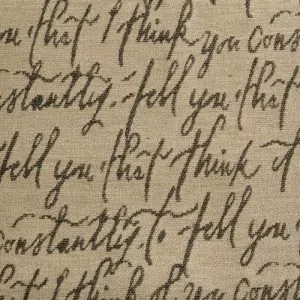 you that I think you cons
stantly. tell you that
tell you that think it
constantly. to tell you
that I think of you cons